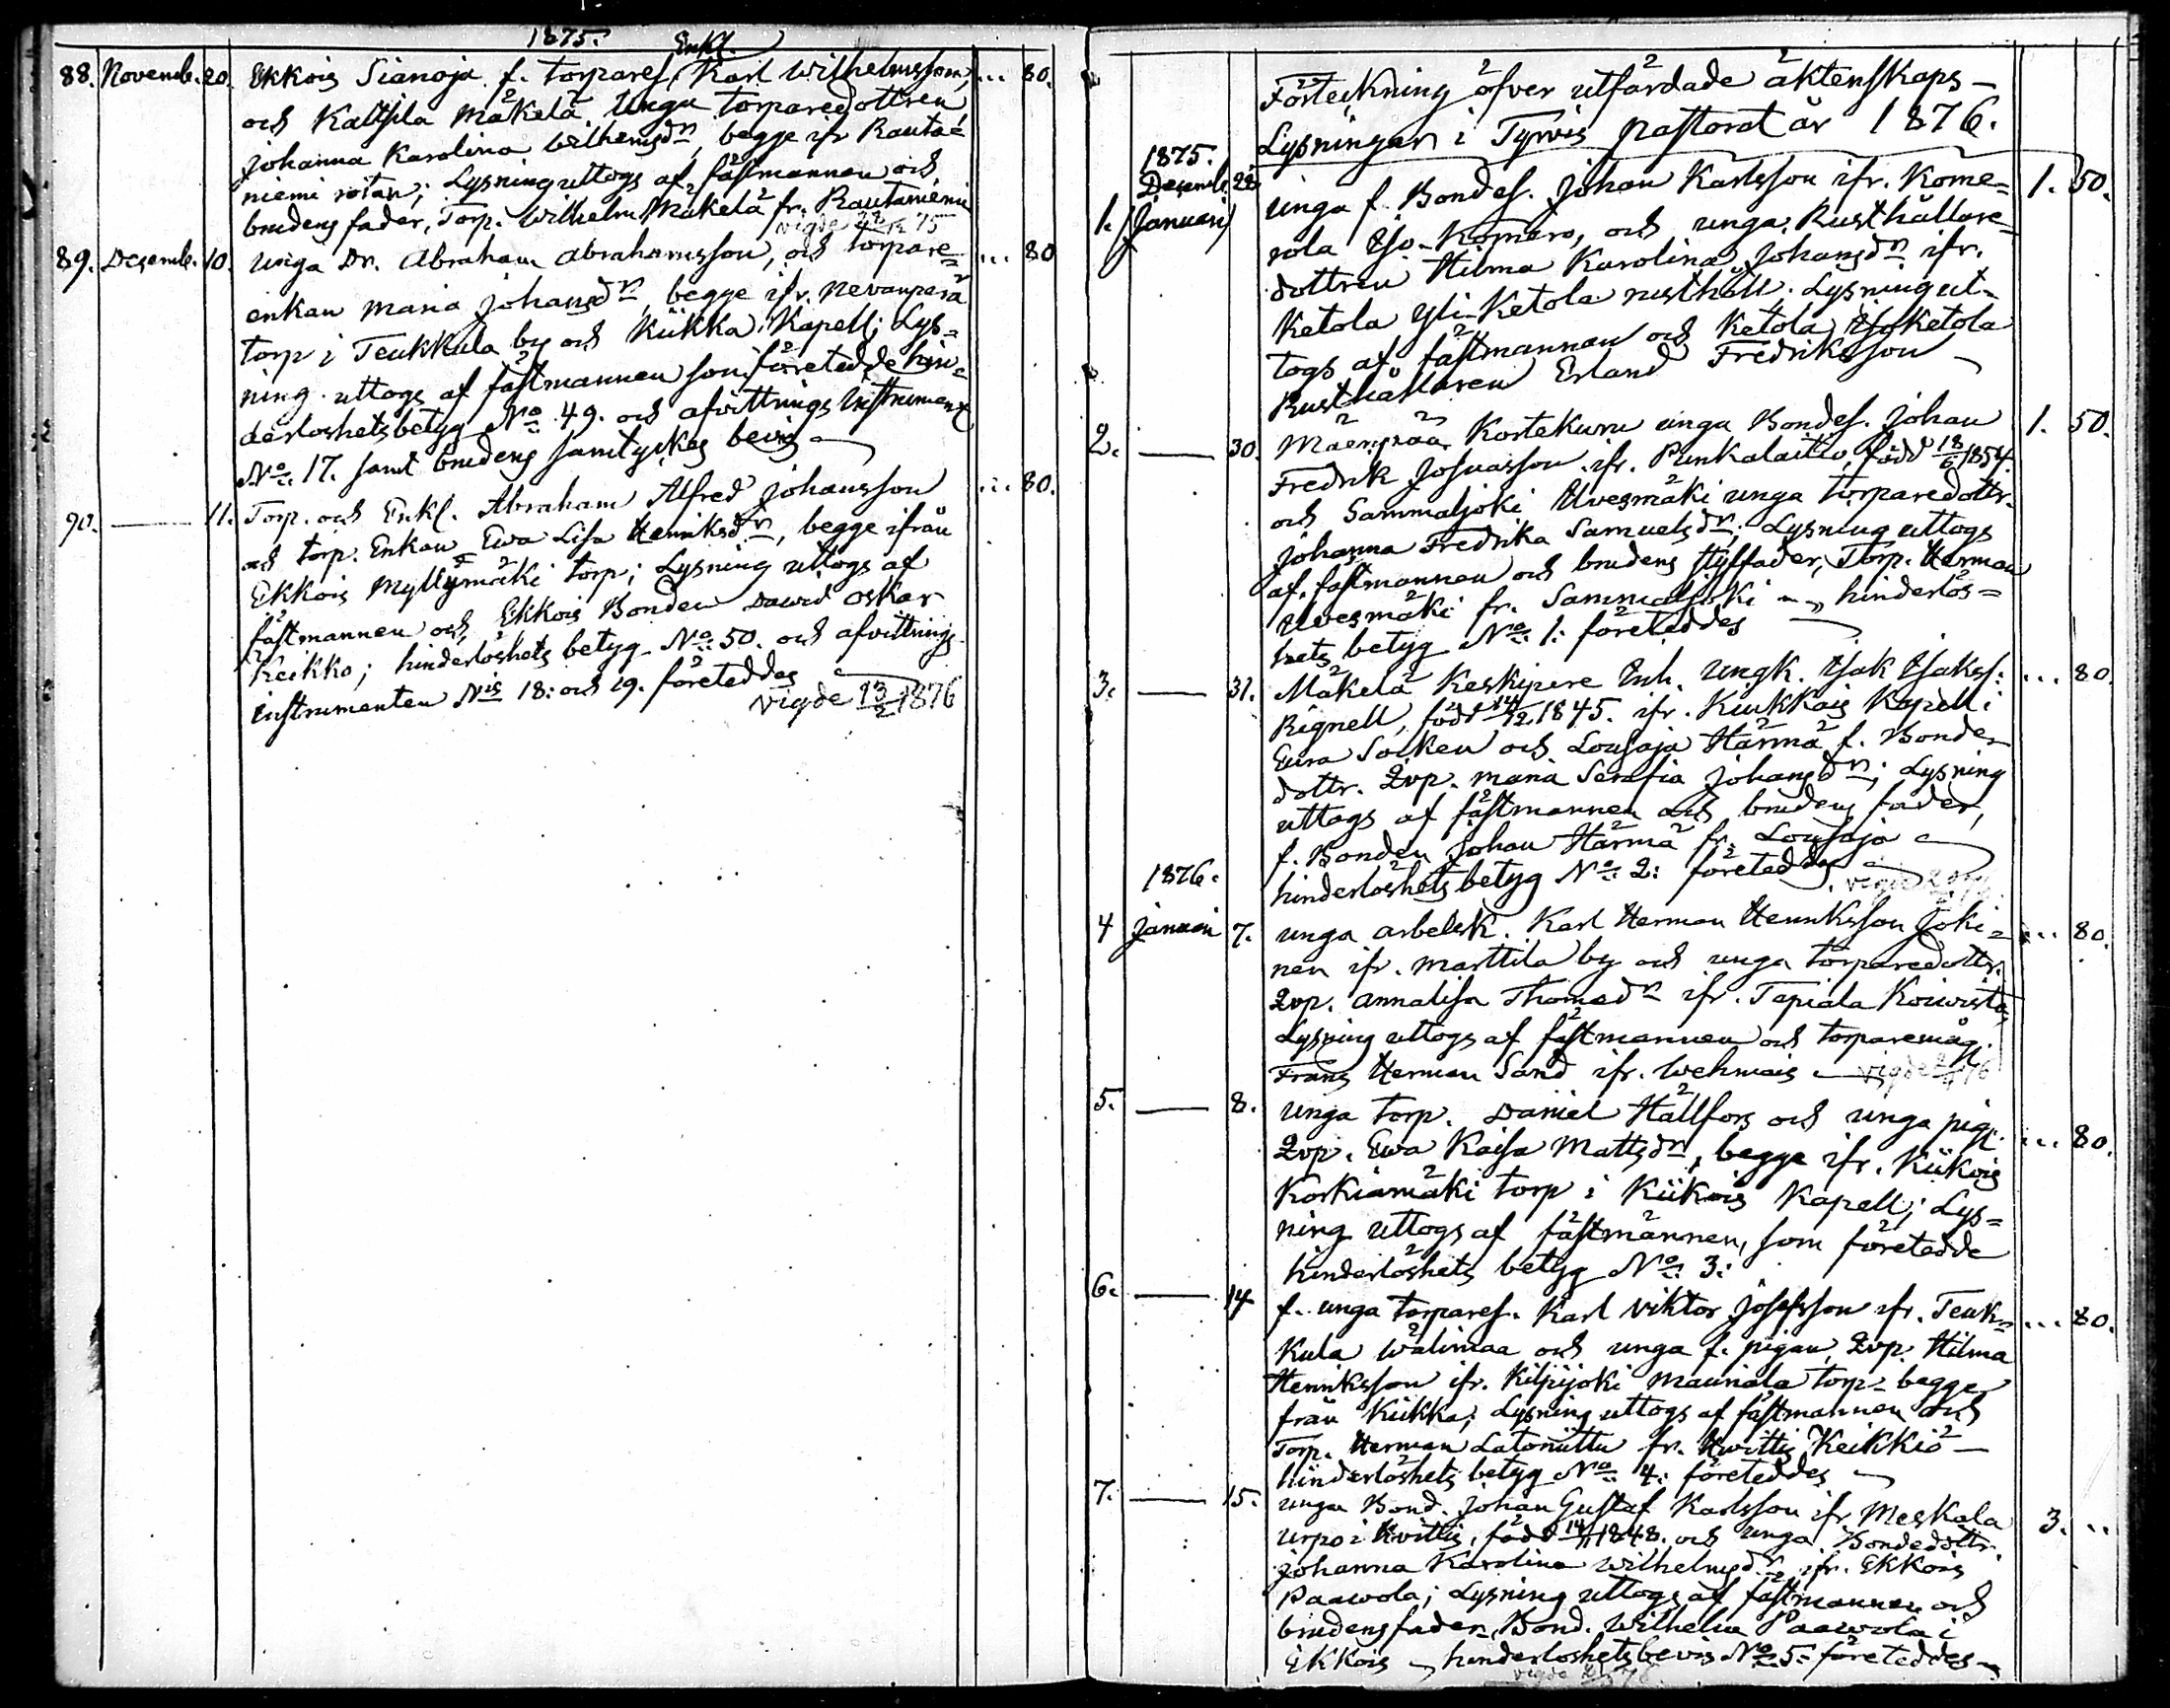 1875.
Enkl.
88. Novemb. 20. Ekkois Sianoja f. torpares. Karl Wilhelmsson, ... 80.
och Kallsila Mäkelä unga torparedottren
Johanna Karolina Wilhemsdr, begge ifr Rauta=
niemi rotan; Lysning uttogs af fästmannen och
brudens fader, Torp. Wilhelm Mäkelä fr. Rautaniemi
vigde 75
89. Desemb. 10. unga Dr. Abraham Abrahamsson, och torpare= ... 80
enkan Maria Johansdr, begge ifr. Nevanperä
torp i Teukkula by och Kiikka Kapell; Lys=
ning uttogs af fästmannen som företedde hin=
derlöshetsbetyg No 49. och afvittrings instrument
No 17. samt brudens samtyckes bevis
90. 11. Torp. och Enkl. Abraham Alfred Johansson ... 80.
och torp. Enkan Ewa Lisa Henriksdr, begge ifrån
Ekkois Myllymäki torp; Lysning uttogs af
fästmannen och Ekkois Bonden David Oskar
Keikko; hinderlöshets betyg No 50. och afvittrings
instrumenten Nis 18: och 19. företeddes
vigde 13/2 1876
Förteckning öfver utfärdade äktenskaps-
Lysningar i Tyrvis pastorat år 1876.
1875.
Desemb. 28.
1. (Januari) unga f. Bondes. Johan Karlsson ifr. Kome= 1. 50.
rola Iso-Komero, och unga Rusthållare=
dottren Hilma Karolina Johansdr ifr.
Ketola Yli-Ketola rusthåll. Lysning ut-
togs af fästmannen och Ketola Isoketola
Rusthållaren Erland Fredriksson
2. 30. Mäenpää Kortekuru unga Bondes. Johan 1. 50.
Fredrik Josuasson ifr. Punkalaitio, född 18/6 1854.
och Sammaljoki Uvesmäki unga torparedottr.
Johanna Fredrika Samuelsdr; Lysning uttogs
af fästmannen och brudens styffader, Torp. Herman
Uvesmäki fr. Sammaljoki hinderlös=
hets betyg No 1: företeddes
3. 31. Mäkelä Keskipere Inh. ungk. Isak Isakss: ... 80.
Rignell, född 14/12 1845. ifr. Kiukkais Kapell i
Eura Socken och Lousaja Härmä f. Bonde=
dottr. Qvp. Maria Serafia Johansdr; Lysning
uttogs af fästmannen och brudens fader,
f. Bonden Johan Härmä fr. Lousaja
hinderlöshets betyg No 2: företeddes
1876.
4 Januari 7. unga arbetsk. Karl Herman Henriksson Joki= ... 80.
nen ifr. Marttila by och unga torparedottr.
Qvp. Annalisa Thomasdr ifr. Tapiala Koiwisto,
Lysning uttogs af fästmannen och torparemåg.
Frans Herman Sand ifr. Wehmais
vigde 76
5. 8. unga torp. Daniel Hällfors och unga pig. ... 80.
Qvp. Ewa Kaisa Mattsdr, begge ifr. Kiikois
Korkiamäki torp i Kiikois Kapell; Lys=
ning uttogs af fästmannen, som företedde
hinderlöshets betyg No 3:
6. 14 f. unga torpares. Karl Viktor Josefsson ifr. Teuk= ... 80.
kula Wälimaa och unga f. pigan, Qvp. Hilma
Henriksson ifr. Kilpijoki Mauriala torp- begge
från Kiikka; Lysning uttogs af fästmannen och
Torp. Herman Latoniittu fr. Hvittis Keikkiö
hinderlöshets betyg No 4: företeddes
7. 15. unga Bond. Johan Gustaf Karlsson ifr Meskala 3. ..
Urpo i Hvittis, född 14/11 1848. och unga Bondedottr.
Johanna Karolina Wilhelmsdr ifr. Ekkois
Paawola; Lysning uttogs af fästmannen och
brudens fader, Bond. Wilhelm Paawola i
Ekkois hinderlöshetsbevis No 5: företeddes
vigde